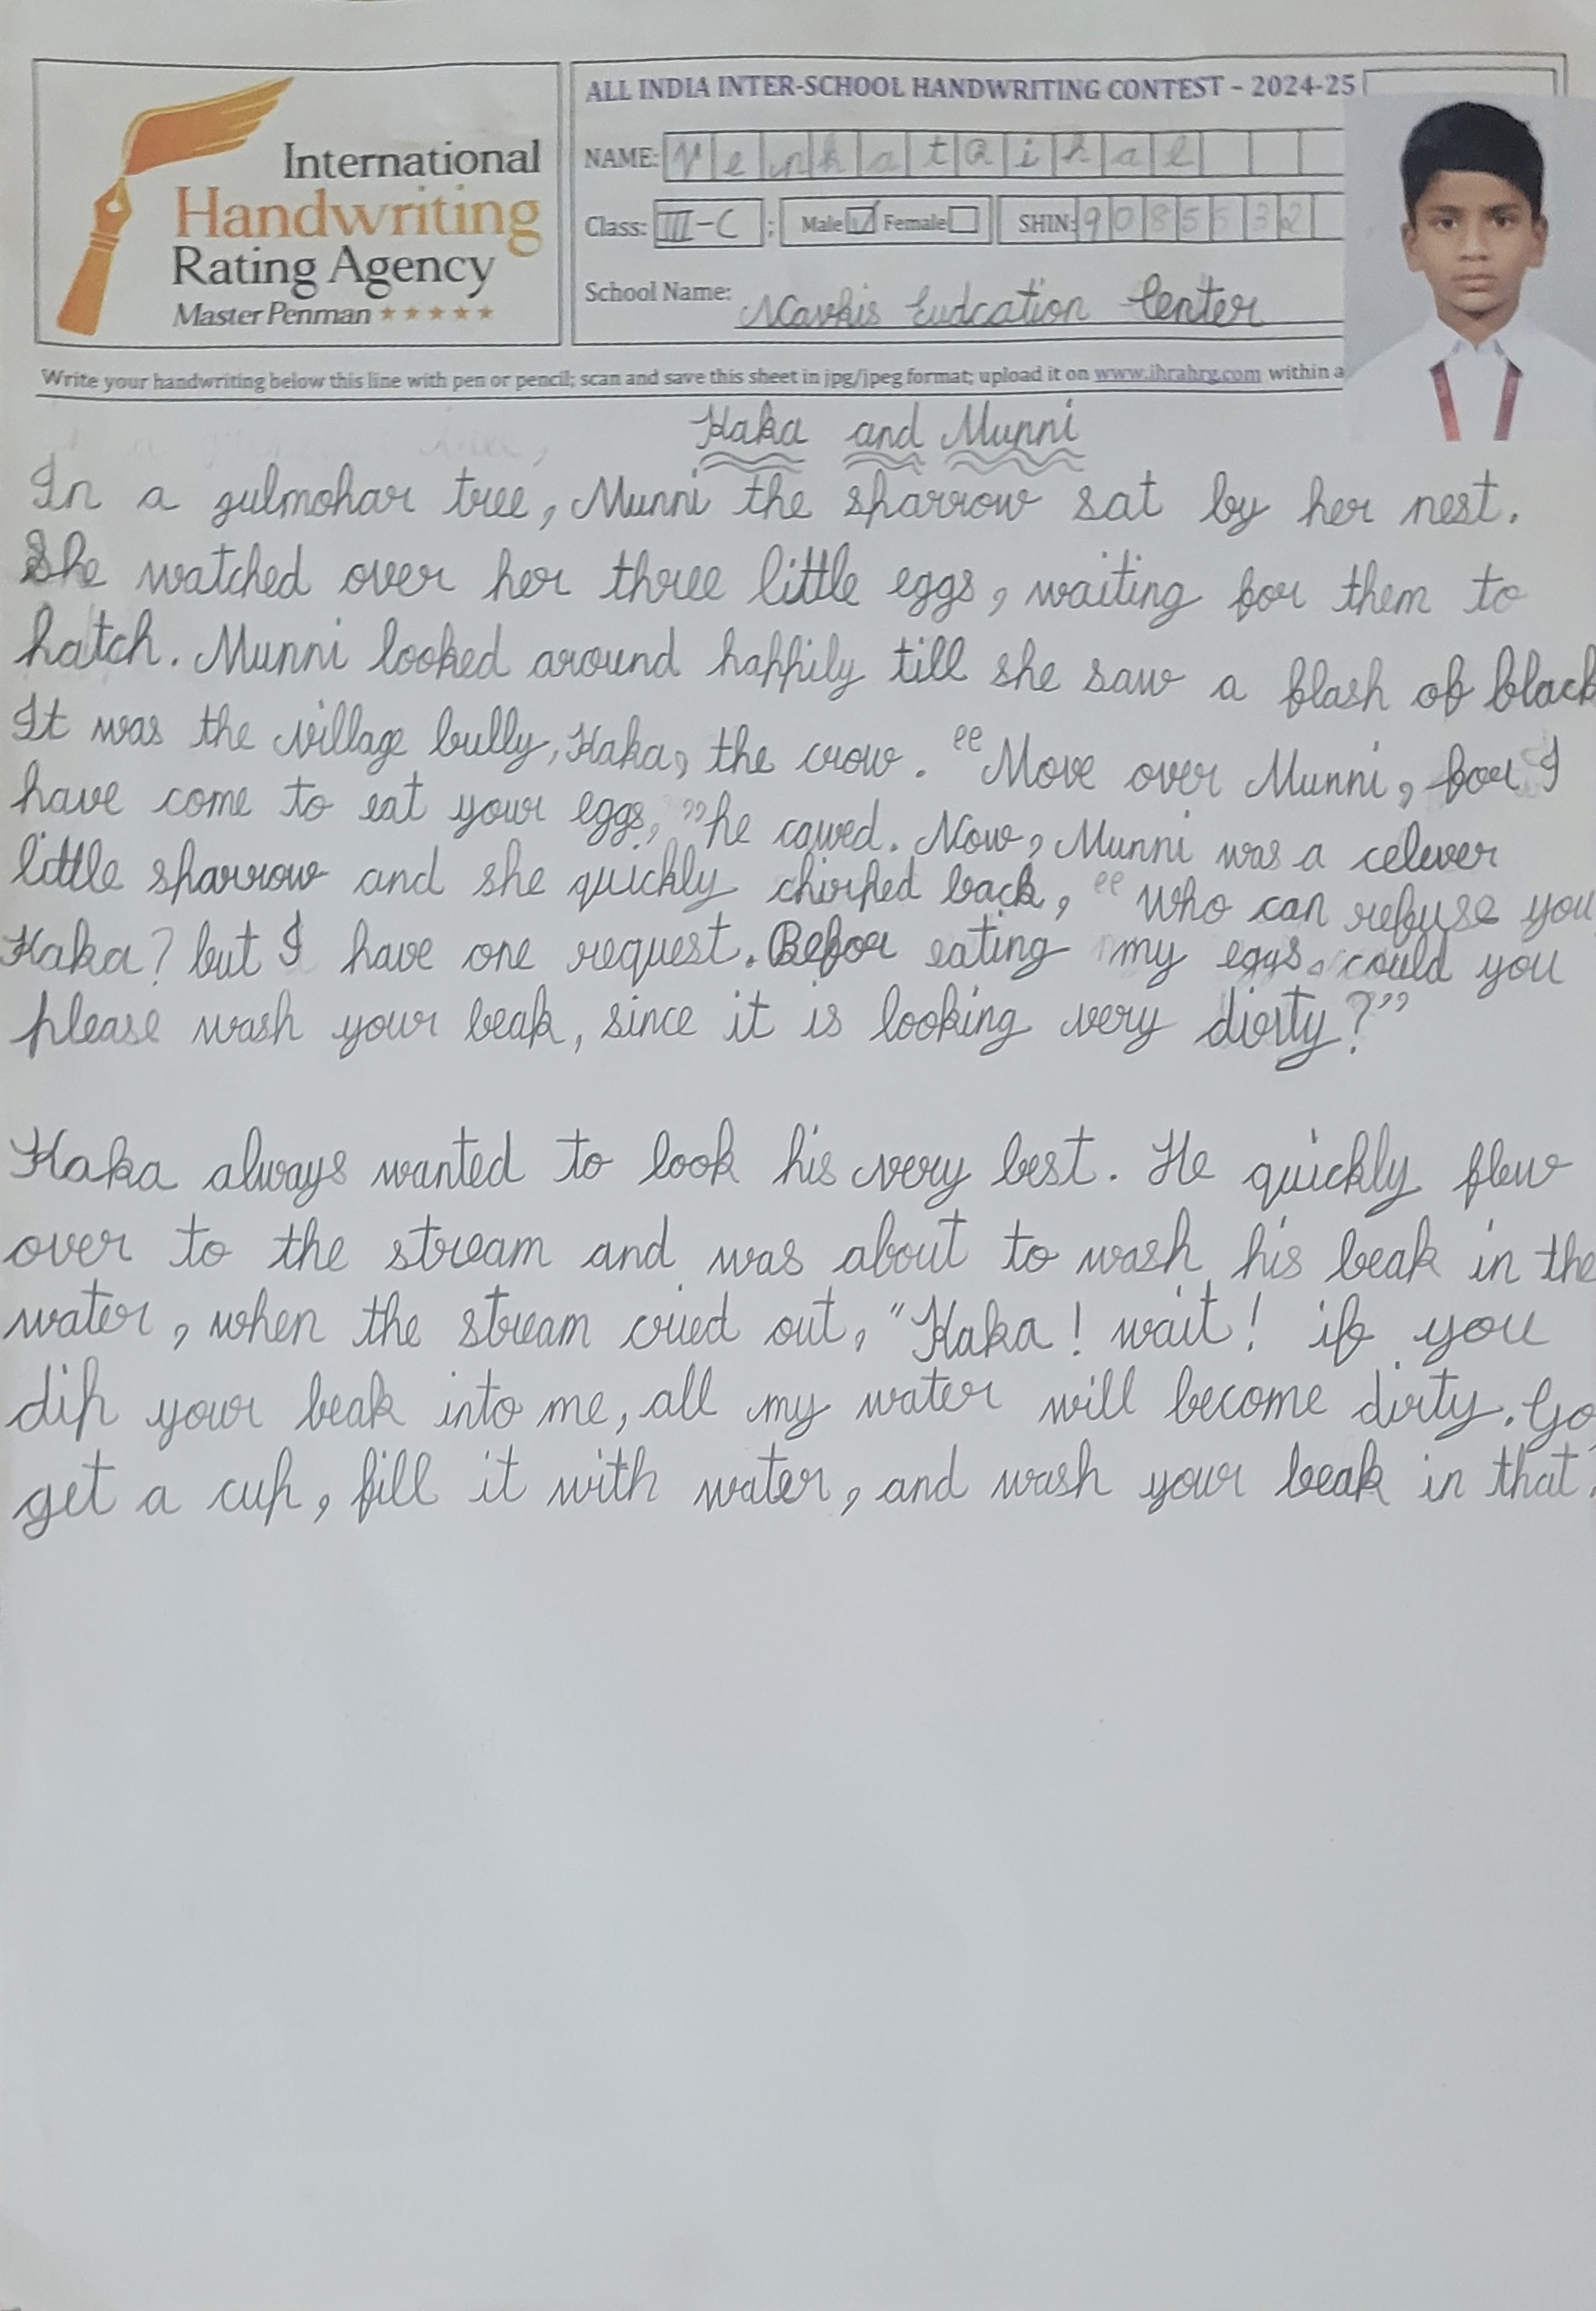 International
Handwriting
Rating Agency
Master Penman
ALL INDIA INTER-SCHOOL HANDWRITING CONTEST - 2024-25
NAME: VenkatRihal
Class: III-C ; Male Female SHIN: 9085532
School Name: Navkis Eudcation Center
Write your handwriting below this line with pen or pencil; scan and save this sheet in jpg/jpeg format; upload it on www.ihrahrg.com within a
Kaka and Munni
In a gulmohar tree, Munni the sparrow sat by her nest.
She watched over her three little eggs, waiting for them to
hatch. Munni looked around happily till she saw a flash of black
It was the village bully, Kaka, the crow. "Move over Munni, for I
have come to eat your eggs," he cawed. Now, Munni was a celever
little sparrow and she quickly chirped back, "Who can refuse you
Kaka? but I have one request. Befor eating my eggs could you
please wash your beak, since it is looking very dirty?"
Kaka always wanted to look his very best. He quickly flew
over to the stream and was about to wash his beak in the
water, when the stream cried out, "Kaka! wait! if you
dip your beak into me, all my water will become dirty. Go
get a cup, fill it with water, and wash your beak in that.